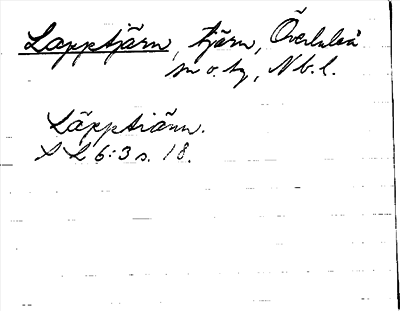 Lapptjärn, tjärn, Överluleå
sn o. tg, N.b.l.
Läpptiänn.
S L 6:3 s. 18.